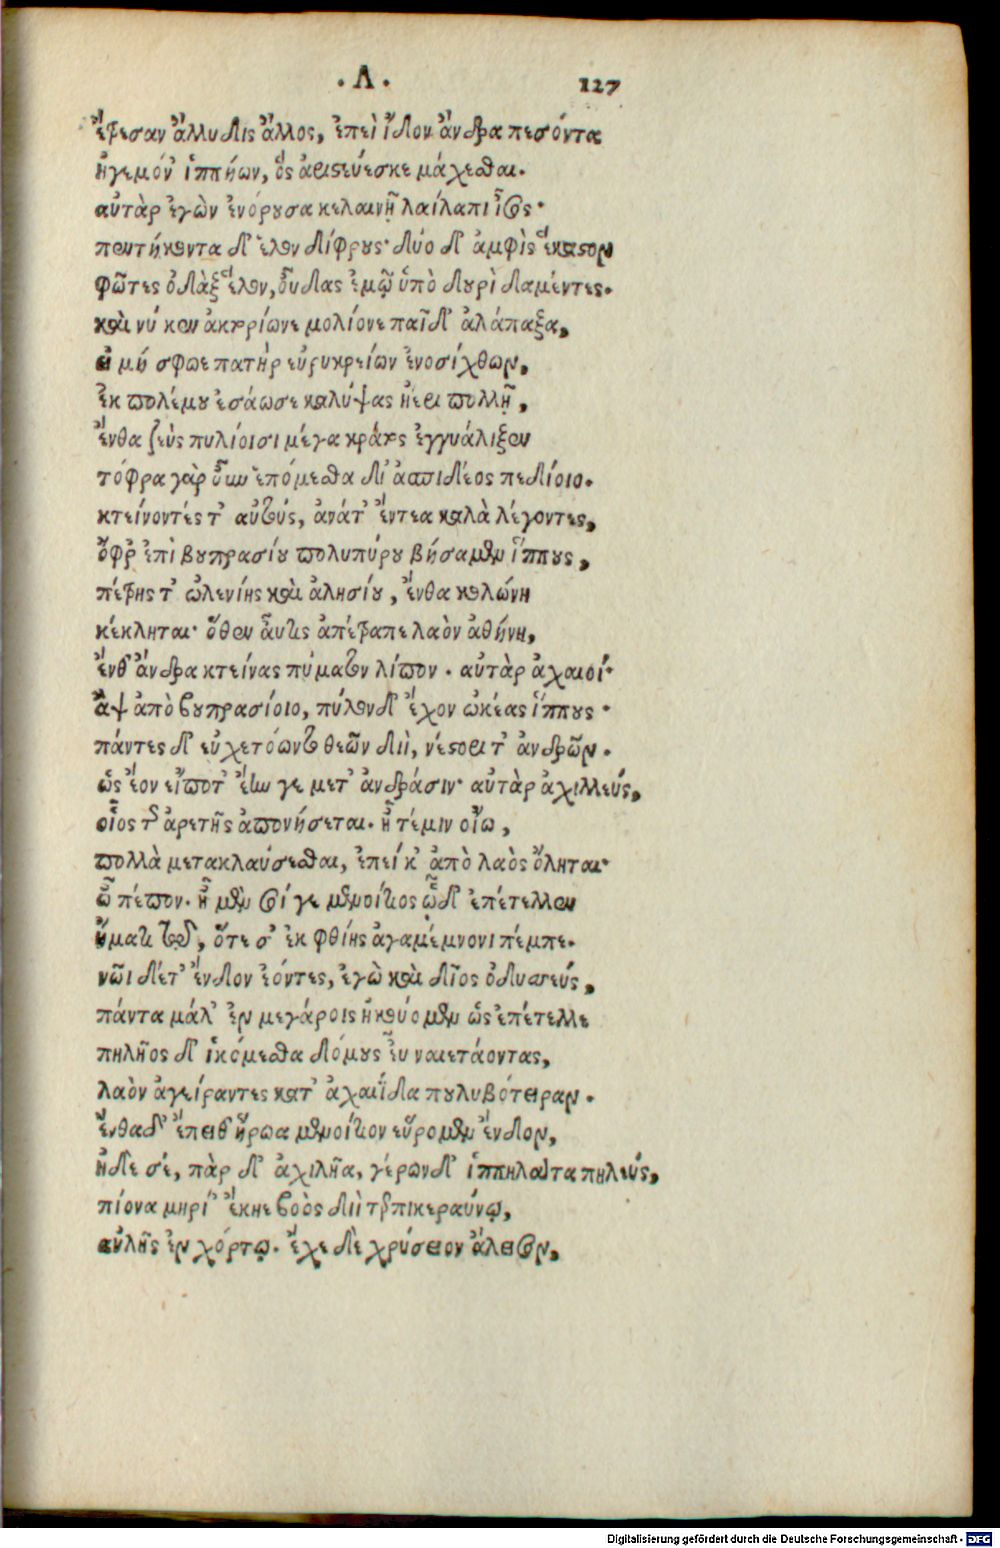 .Λ. 127
ἔτρεσαν ἄλλυδις ἄλλος, ἐπεὶ ἴδον ἄνδρα πεσόντα
ἡγεμόν' ἱππήων, ὃς ἀριστεύεσκε μάχεσθαι.
αὐτὰρ ἐγὼν ἐνόρουσα κελαινῇ λαίλαπι ἶσος·
πεντήκοντα δ' ἕλον δίφρους· δύο δ' ἀμφὶς ἕκαστον
φῶτες ὀδὰξ ἕλον, οὖδας ἐμῷ ὑπὸ δουρὶ δαμέντες.
καὶ νύ κεν ἀκτορίωνε μολίονε παῖδ' ἀλάπαξα,
εἰ μή σφωε πατὴρ εὐρυκρείων ἐνοσίχθων,
ἐκ πολέμου ἐσάωσε καλύψας ἠέρι πολλῇ,
ἔνθα ζεὺς πυλίοισι μέγα κράτος ἐγγυάλιξεν
τόφρα γὰρ οὖν ἑπόμεσθα δι' ἀσπιδέος πεδίοιο.
κτείνοντές τ' αὐτούς, ἀνάτ' ἔντεα καλὰ λέγοντες,
ὄφρ' ἐπὶ βουπρασίου πολυπύρου βήσαμεν ἵππους,
πέτρης τ' ὠλενίης καὶ ἀλησίου, ἔνθα κολώνη
κέκληται· ὅθεν αὖτις ἀπέτραπε λαὸν ἀθήνη,
ἔνθ' ἄνδρα κτείνας πύματον λίπον. αὐτὰρ ἀχαιοί·
ἂψ ἀπὸ βουπρασίοιο, πύλονδ' ἔχον ὠκέας ἵππους·
πάντες δ' εὐχετόωντο θεῶν διὶ, νέστορι τ' ἀνδρῶν.
ὣς ἔον εἴποτ' ἔον γε μετ' ἀνδράσιν· αὐτὰρ ἀχιλλεύς,
οἶος τῆς ἀρετῆς ἀπονήσεται. ἦ τέ μιν οἴω,
πολλὰ μετακλαύσεσθαι, ἐπεί κ' ἀπὸ λαὸς ὄληται·
ὦ πέπον. ἦ μὲν σοί γε μενοίτιος ὧδ' ἐπέτελλεν
ἤματι τῷ, ὅτε σ' ἐκ φθίης ἀγαμέμνονι πέμπε.
νῶι δέ τ' ἔνδον ἐόντες, ἐγὼ καὶ δῖος ὀδυσσεύς,
πάντα μάλ' ἐν μεγάροις ἠκούομεν ὡς ἐπέτελλε
πηλῆος δ' ἱκόμεσθα δόμους εὖ ναιετάοντας,
λαὸν ἀγείραντες κατ' ἀχαιΐδα πουλυβότειραν.
ἔνθα δ' ἔπειθ' ἥρωα μενοίτιον εὕρομεν ἔνδον,
ἠδὲ σέ, πὰρ δ' ἀχιλῆα, γέρων δ' ἱππηλάτα πηλεύς,
πίονα μηρί' ἔκηε βοὸς διὶ τερπικεραύνῳ,
αὐλῆς ἐν χόρτῳ. ἔχε δὲ χρύσειον ἄλεισον,
Digitalisierung gefördert durch die Deutsche Forschungsgemeinschaft - DFG